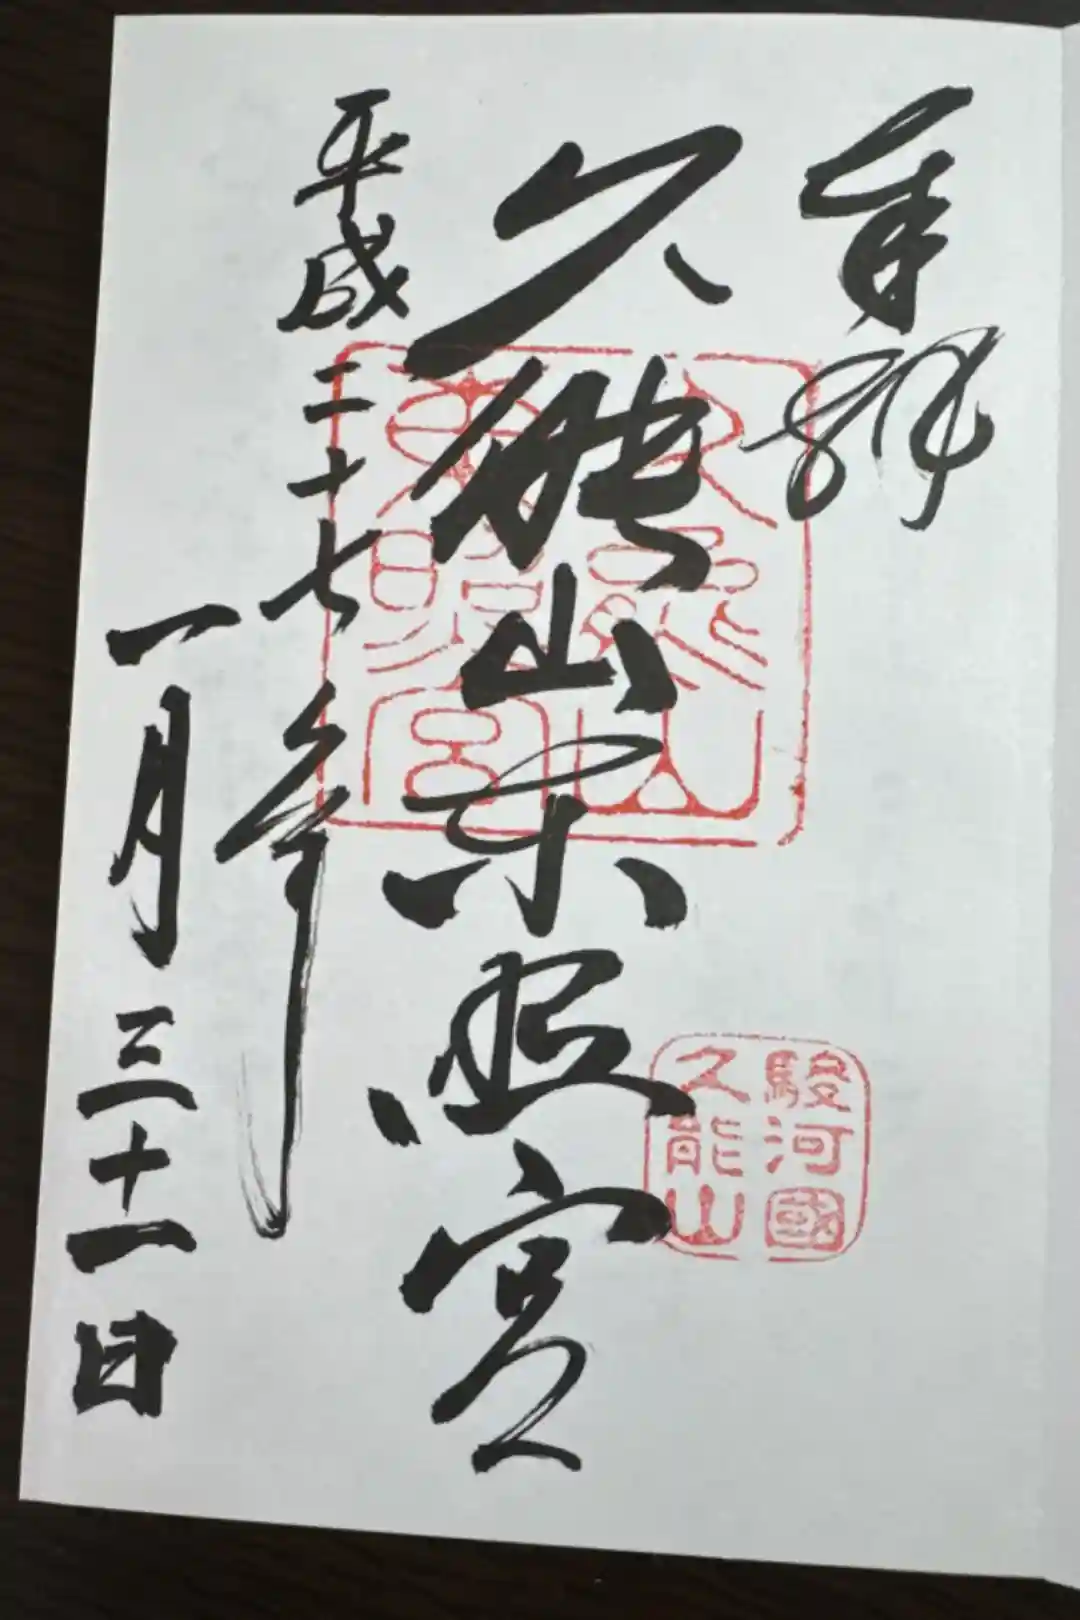 奉拝
久能山東照宮
平成二十七年
一月三十一日
久能山
東照宮
駿河國
久能山